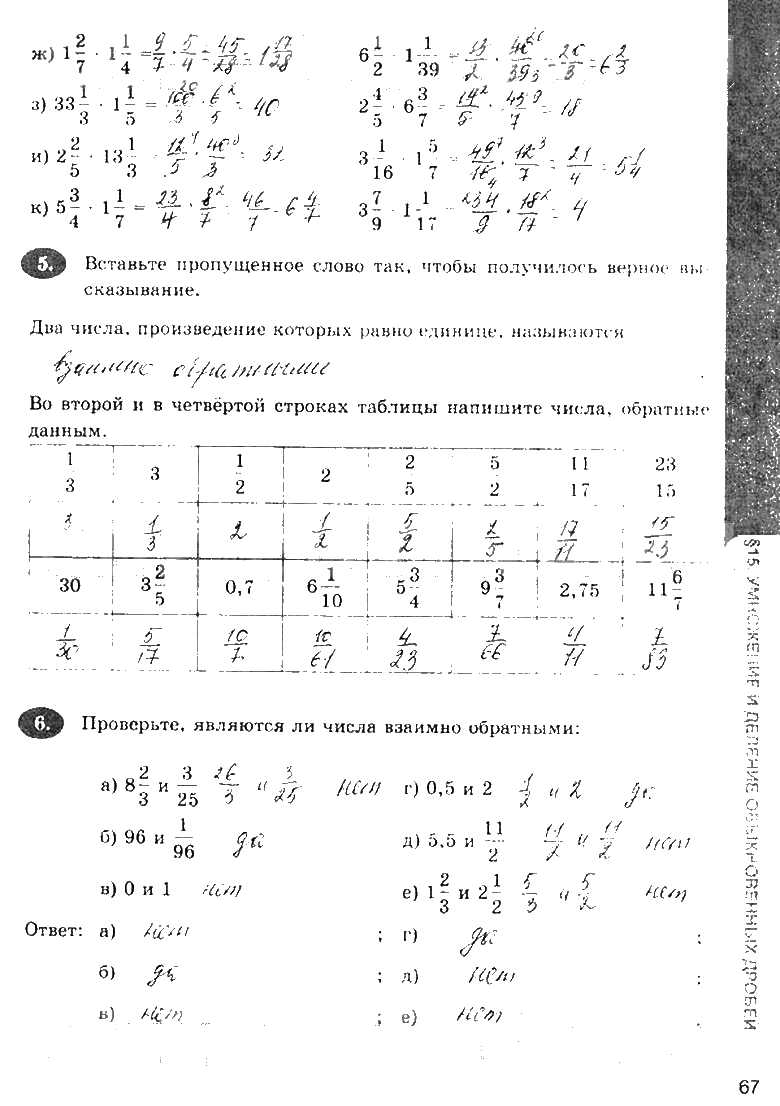 ж) 1 2/7 · 1 1/4 = 9/7 · 5/4 = 45/28 = 1 17/28
6 1/2 · 1 1/39 = 13/2 · 40 20/39 3 = 20/3 = 6 2/3
з) 33 1/3 · 1 1/5 = 100 20/3 · 6 2/5 = 40
2 4/5 · 6 3/7 = 14 2/5 · 45 9/7 = 18
и) 2 2/5 · 13 1/3 12 4/5 · 40 8/3 = 32
3 1/16 · 1 5/7 = 49 7/16 4 · 12 3/7 = 21/4 = 5 1/4
к) 5 3/4 · 1 1/7 = 23/4 · 8 2/7 = 46/7 = 6 4/7
3 7/9 · 1 1/17 = 34/9 · 18 2/17 = 4
5. Вставьте пропущенное слово так, чтобы получилось верное вы-
сказывание.
Два числа, произведение которых равно единице, называются
взаимно обратными .
Во второй и в четвёртой строках таблицы напишите числа, обратные
данным.
1/3 3 1/2 2 2/5 5/2 11/17 23/15
3 1/3 2 1/2 5/2 2/5 17/11 15/23
30 3 2/5 0,7 6 1/10 5 3/4 9 3/7 2,75 11 6/7
1/30 5/17 10/7 10/61 4/23 7/66 4/11 7/83
6. Проверьте, являются ли числа взаимно обратными:
а) 8 2/3 и 3/25 26/3 и 3/25 нет
г) 0,5 и 2 1/2 и 2 да
б) 96 и 1/96 да
д) 5,5 и 11/2 11/2 и 11/2 нет
в) 0 и 1 нет
е) 1 2/3 и 2 1/2 5/3 и 5/2 нет
Ответ: а) нет ; г) да ;
б) да ; д) нет ;
в) нет ; е) нет .
§15. УМНОЖЕНИЕ И ДЕЛЕНИЕ ОБЫКНОВЕННЫХ ДРОБЕЙ
67